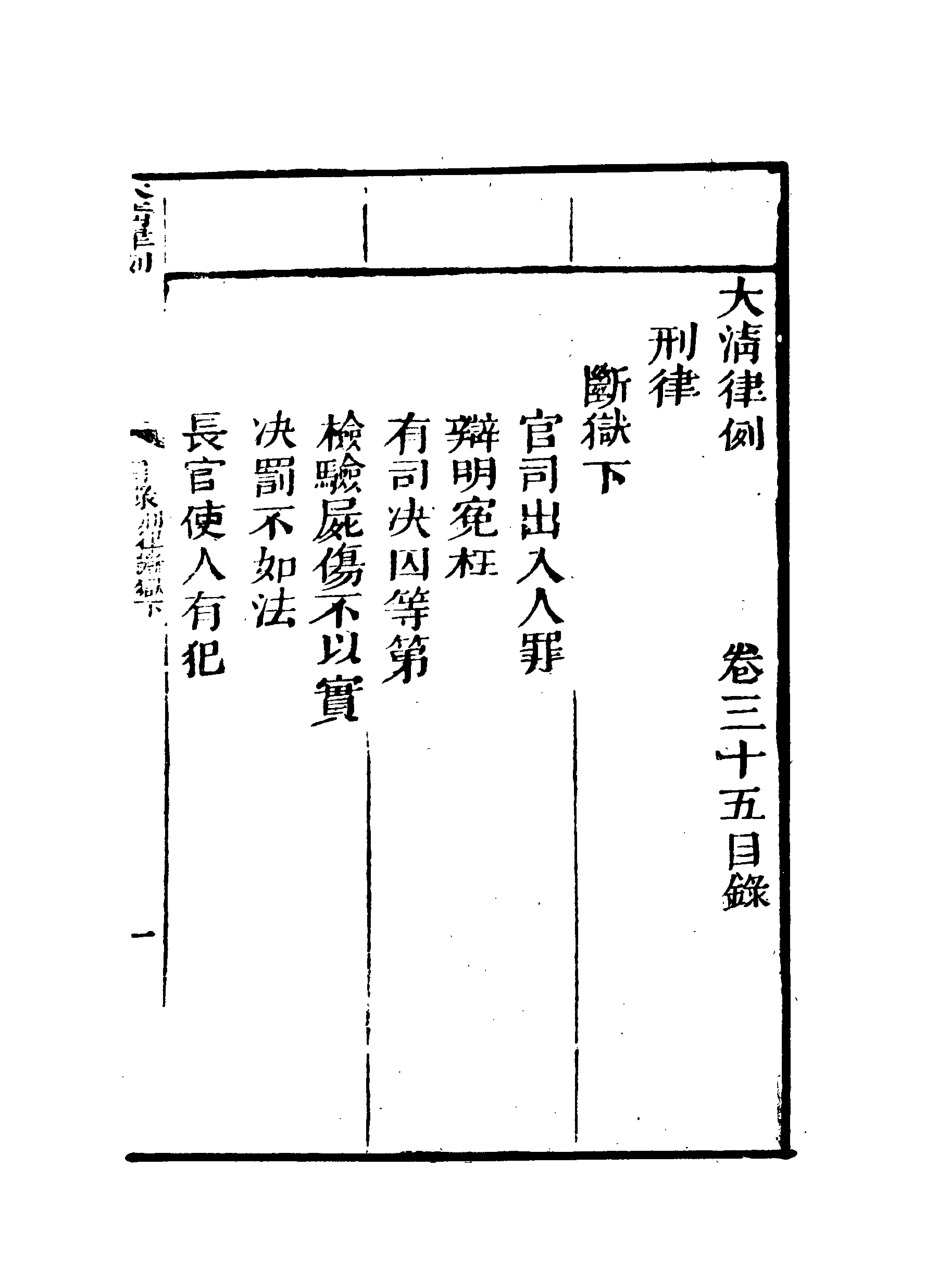 大清律例　卷三十五目錄
刑律
斷獄下
官司出入人罪
辯明冤枉
有司決囚等第
檢驗屍傷不以實
決罰不如法
長官使人有犯
大清律例
目錄刑律斷獄下
一